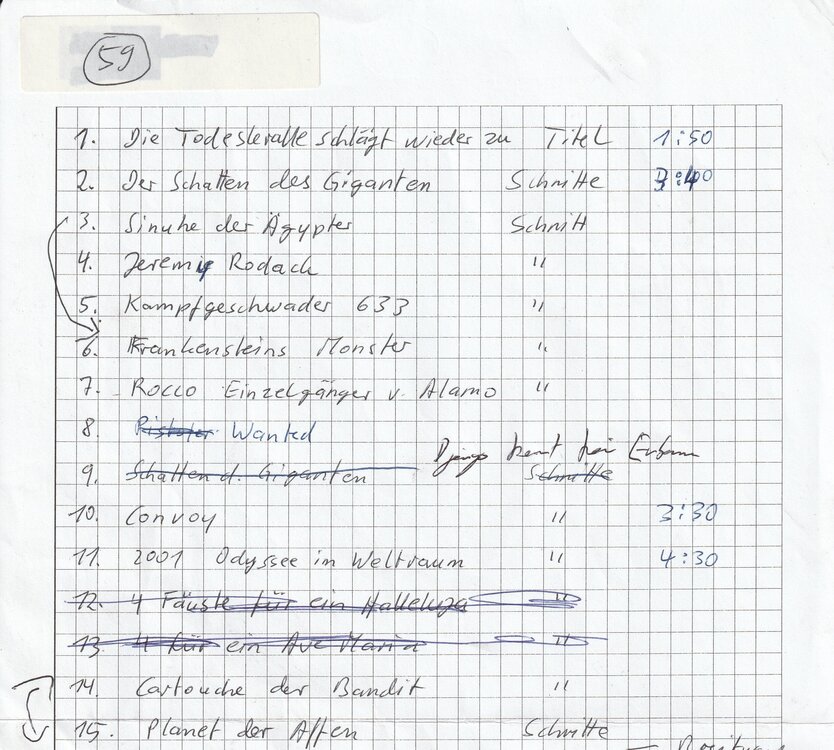 59
1. Die Todeskralle schlägt wieder zu Titel 1:50
2. Der Schatten des Giganten Schnitte 3:40
3. Sinuhe der Ägypter Schnitt
4. Jeremy Rodack "
5. Kampfgeschwader 633 "
6. Frankensteins Monster "
7. Rocco Einzelgänger v. Alamo "
8. Wanted
Django kennt kein Erbarm
9. Schatten d. Giganten Schnitte
10. Convoy " 3:30
11. 2001 Odyssee im Weltraum " 4:30
12. 4 Fäuste für ein Halleluja "
13. 4 für ein Ave Maria "
14. Cartouche der Bandit "
15. Planet der Affen Schnitte